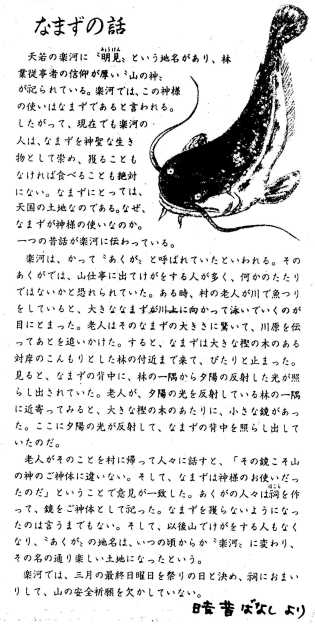 なまずの話
天若の楽河に〝明見〟という地名があり、林
みょうけん
業従事者の信仰が厚い〝山の神〟
が祀られている。楽河では、この神様
の使いはなまずであると言われる。
したがって、現在でも楽河の
人は、なまずを神聖な生き
物として崇め、獲ることも
なければ食べることも絶対
にない。なまずにとっては、
天国の土地なのである。なぜ、
なまずが神様の使いなのか。
一つの昔話が楽河に伝わっている。
楽河は、かって〝あくが〟と呼ばれていたといわれる。その
あくがでは、山仕事に出てけがをする人が多く、何かのたたり
ではないかと恐れられていた。ある時、村の老人が川で魚つり
をしていると、大きななまずが川上に向かって泳いでいくのが
目にとまった。老人はそのなまずの大きさに驚いて、川原を伝
ってあとを追いかけた。すると、なまずは大きな樫の木のある
対岸のこんもりとした林の付近まで来て、ぴたりと止まった。
見ると、なまずの背中に、林の一隅から夕陽の反射した光が照
らし出されていた。老人が、夕陽の光を反射している林の一隅
に近寄ってみると、大きな樫の木のあたりに、小さな鏡があっ
た。ここに夕陽の光が反射して、なまずの背中を照らし出して
いたのだ。
老人がそのことを村に帰って人々に話すと、「その鏡こそ山
の神のご神体に違いない。そして、なまずは神様のお使いだっ
たのだ」ということで意見が一致した。あくがの人々は祠を作
ほこら
って、鏡をご神体として祀った。なまずを獲らないようになっ
たのは言うまでもない。そして、以後山でけがをする人もなく
なり、〝あくが〟の地名は、いつの頃からか〝楽河〟に変わり、
その名の通り楽しい土地になったという。
楽河では、三月の最終日曜日を祭りの日と決め、祠におまい
りして、山の安全祈願を欠かしていない。
昔ばなし より